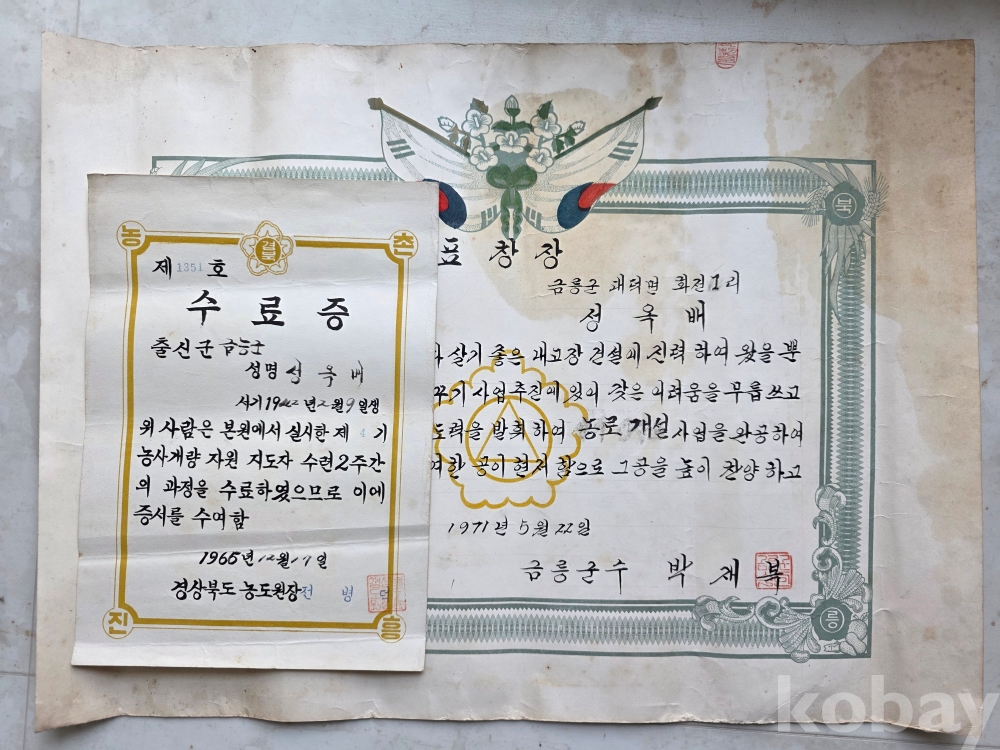 농 촌
경북
제 1351 호
수료증
출신군 금릉군
성명 성옥배
서기19 년2월9일생
위 사람은 본원에서 실시한 제 4 기
농사개량 자원 지도자 수련2주간
의 과정을 수료하였으므로 이에
증서를 수여함
1965년12월17일
경상북도 농도원장 전 병 덕
진 흥
북
표창장
금릉군 대덕면 화전1리
성옥배
살기 좋은 내고장 건설에 진력 하여 왔을 뿐
꾸기 사업추진에 있어 갖은 어려움을 무릅쓰고
도력을 발휘 하여 농로개설 사업을 완공하여
여한 공이 현저 함으로 그공을 높이 찬양 하고
1971년 5월 22일
금릉군수 박재복
릉
kobay